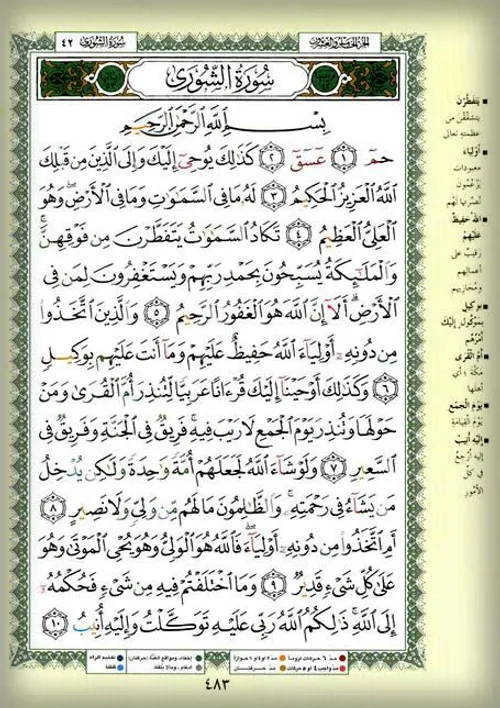 الجزء الخامس والعشرون
سورة الشورى ٤٢
سُورَةُ الشُّورَىٰ
بِسْمِ اللَّهِ الرَّحْمَٰنِ الرَّحِيمِ
حمٓ ١ عٓسٓقٓ ٢ كَذَٰلِكَ يُوحِىٓ إِلَيْكَ وَإِلَى ٱلَّذِينَ مِن قَبْلِكَ
ٱللَّهُ ٱلْعَزِيزُ ٱلْحَكِيمُ ٣ لَهُۥ مَا فِى ٱلسَّمَٰوَٰتِ وَمَا فِى ٱلْأَرْضِ وَهُوَ
ٱلْعَلِىُّ ٱلْعَظِيمُ ٤ تَكَادُ ٱلسَّمَٰوَٰتُ يَتَفَطَّرْنَ مِن فَوْقِهِنَّ
وَٱلْمَلَٰٓئِكَةُ يُسَبِّحُونَ بِحَمْدِ رَبِّهِمْ وَيَسْتَغْفِرُونَ لِمَن فِى
ٱلْأَرْضِ أَلَآ إِنَّ ٱللَّهَ هُوَ ٱلْغَفُورُ ٱلرَّحِيمُ ٥ وَٱلَّذِينَ ٱتَّخَذُوا۟
مِن دُونِهِۦٓ أَوْلِيَآءَ ٱللَّهُ حَفِيظٌ عَلَيْهِمْ وَمَآ أَنتَ عَلَيْهِم بِوَكِيلٍ
٦ وَكَذَٰلِكَ أَوْحَيْنَآ إِلَيْكَ قُرْءَانًا عَرَبِيًّا لِّتُنذِرَ أُمَّ ٱلْقُرَىٰ وَمَنْ
حَوْلَهَا وَتُنذِرَ يَوْمَ ٱلْجَمْعِ لَا رَيْبَ فِيهِ فَرِيقٌ فِى ٱلْجَنَّةِ وَفَرِيقٌ فِى
ٱلسَّعِيرِ ٧ وَلَوْ شَآءَ ٱللَّهُ لَجَعَلَهُمْ أُمَّةً وَٰحِدَةً وَلَٰكِن يُدْخِلُ
مَن يَشَآءُ فِى رَحْمَتِهِۦ وَٱلظَّٰلِمُونَ مَا لَهُم مِّن وَلِىٍّ وَلَا نَصِيرٍ ٨
أَمِ ٱتَّخَذُوا۟ مِن دُونِهِۦٓ أَوْلِيَآءَ فَٱللَّهُ هُوَ ٱلْوَلِىُّ وَهُوَ يُحْىِ ٱلْمَوْتَىٰ وَهُوَ
عَلَىٰ كُلِّ شَىْءٍ قَدِيرٌ ٩ وَمَا ٱخْتَلَفْتُمْ فِيهِ مِن شَىْءٍ فَحُكْمُهُۥٓ
إِلَى ٱللَّهِ ذَٰلِكُمُ ٱللَّهُ رَبِّى عَلَيْهِ تَوَكَّلْتُ وَإِلَيْهِ أُنِيبُ ١٠
يَتَفَطَّرْنَ
يتشقّقن من
عظمته تعالى
أَوْلِيَاءَ
معبودات
يزعمون
نُصرتها لهم
اللهُ حفيظٌ
عليهم
رقيبٌ على
أعمالهم
ومجازيهم
بوكيل
بموكول إليك
أمرهم
أمّ القرى
مكّة؛ أي
أهلها
يوم الجمع
يوم القيامة
إليه أنيب
إليه أرجعُ
في كلّ
الأمور
مدّ ٦ حركات لزوماً
مدّ ٢ أو ٤ أو ٦ جوازاً
إخفاء، ومواقع الغنّة (حركتان)
تفخيم الراء
مدّ واجب ٤ أو ٥ حركات
مدّ حركتان
إدغام، وما لا يُلفظ
قلقلة
٤٨٣